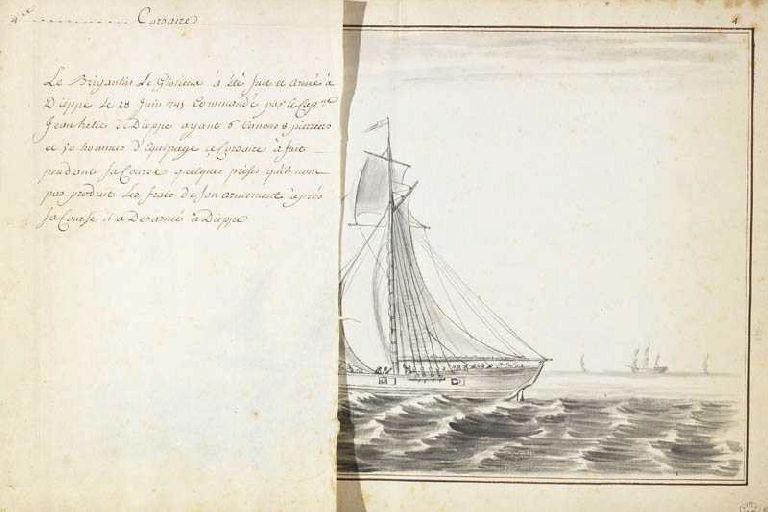 4e ............ Corsaire
4
Le Brigantin Le Glorieux à été fait et armé à
Dieppe Le 28 Juin 1741 Commandé par le Cap.ne
Jean helie de Dieppe ayant 6 Canons 8 pierriers
et 50 hommes d'Equipage ce Corsaire à fait
pendant sa Course quelques prises qui n'ont
pas produit les frais de son armement après
sa Course il a Desarmé à Dieppe